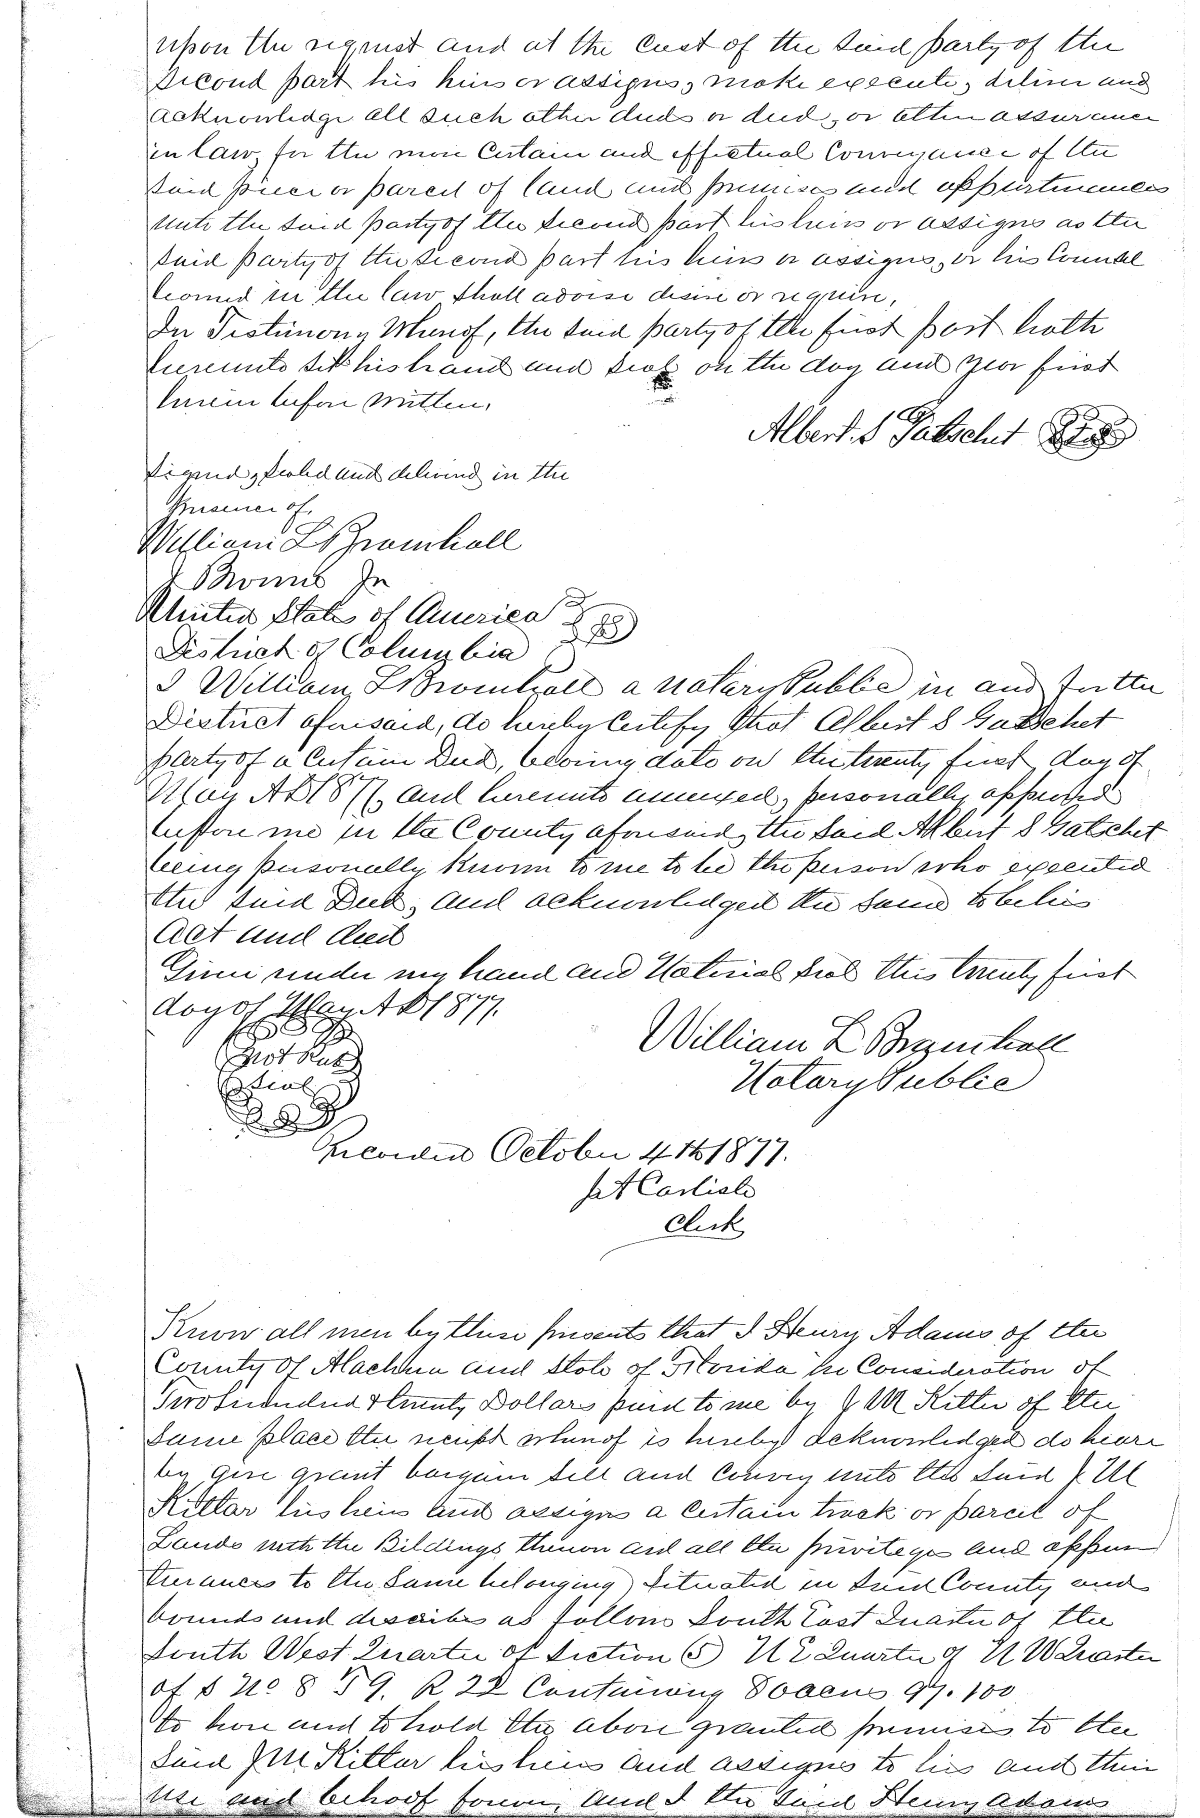 upon the request and at the Cost of the Said party of the
Second part his heirs or assigns, make execute, deliver and
acknowledge all such other deeds or deed, or other assurance
in law, for the more Certain and effectual Conveyance of the
Said piece or parcel of land and premises and appurtenances
unto the said party of the Second part his heirs or assigns as the
Said party of the Second part his heirs or assigns, or his Counsel
learned in the law shall advise desire or require,
In Testimony Whereof, the said party of the first part hath
hereunto set his hand and seal on the day and year first
herein before written.
Albert. S Gatschet Seal
Signed, Sealed and delivered in the
Presence of.
William L Bromhall
Jr
United States of America
District of Columbia
I William L Bromhall a Notary Public in and for the
District aforesaid, do hereby Certify that Albert S Gatschet
party of a Certain Deed, bearing date on the twenty first day of
May AD 1877, and hereunto annexed, personally appeared
before me in the County aforesaid, the Said Albert S Gatschet
being personally known to me to be the person who executed
the said Deed, and acknowledged the same to be his
Act and deed
Given under my hand and Notarial Seal this twenty first
day of May AD 1877.
William L Bromhall
Notary Public
Not Pub
Seal
Recorded October 4th 1877.
J A Carlisle
Clerk
Know all men by these presents that I Henry Adams of the
County of Alachua and State of Florida in Consideration of
Two hundred & twenty Dollars paid to me by J M Kitler of the
Same place the receipt whereof is hereby acknowledged do heare
by give grant bargain sell and Convey unto the Said J. M
Kittlar his heirs and assigns a Certain track or parcel of
Lands with the Bildings thereon and all the priviteges and appur
tenances to the Same belonging Situated in Said County and
bounds and describes as follows South East Quarter of the
South West Quarter of Section (5) N E Quarter of N W Quarter
of S No 8 T 9. R 22 Containing 80 acres 97. 100
To have and to hold the above granted premises to the
Said J M Kittlar his heirs and assigns to his and their
use and behoof forever, And I the Said Henry Adams